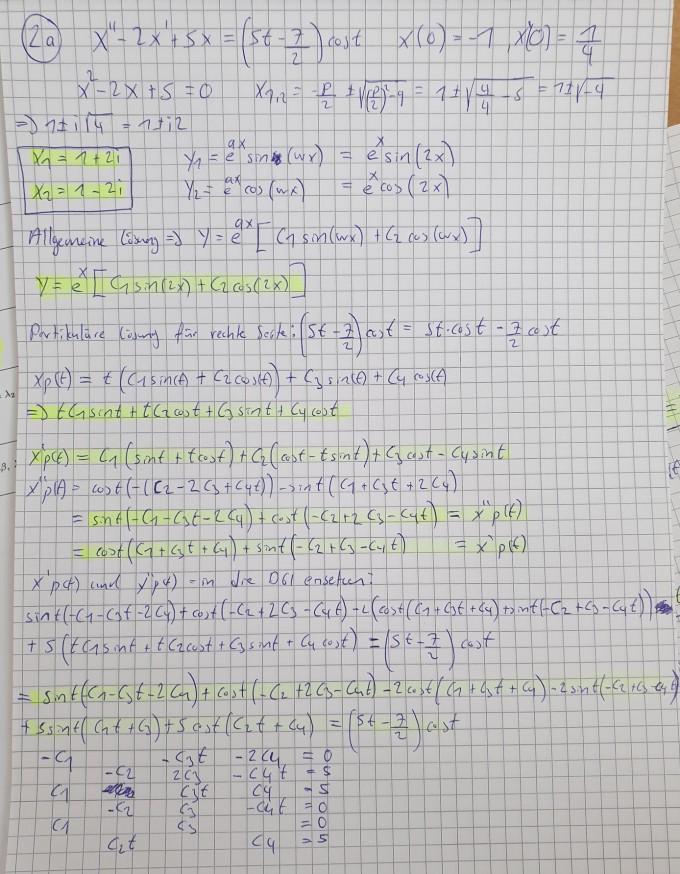 2a) x'' - 2x' + 5x = (5t - 7/2) cost   x(0) = -1, x'(0) = 1/4
x² - 2x + 5 = 0   x1,2 = -p/2 ± √((p/2)² - q) = 1 ± √(4/4 - 5) = 1 ± √-4
=> 1 ± i√4 = 1 ± i2
x1 = 1 + 2i   y1 = e^ax sin (wx) = e^x sin(2x)
x2 = 1 - 2i   y2 = e^ax cos (wx) = e^x cos (2x)
Allgemeine Lösung => y = e^ax [C1 sin(wx) + C2 cos(wx)]
y = e^x [C1 sin(2x) + C2 cos(2x)]
Partikuläre Lösung für rechte Seite: (5t - 7/2) cost = 5t·cost - 7/2 cost
xp(t) = t (C1 sin(t) + C2 cos(t)) + C3 sin(t) + C4 cos(t)
=> tC1 sint + tC2 cost + C3 sint + C4 cost
x'p(t) = C1 (sint + tcost) + C2 (cost - tsint) + C3 cost - C4 sint
x''p(t) = cost(-(C2 - 2C3 + C4t)) - sint(C1 + C3t + 2C4)
= sint(-C1 - C3t - 2C4) + cost(-C2 + 2C3 - C4t) = x''p(t)
= cost(C1 + C3t + C4) + sint(-C2 + C3 - C4t) = x'p(t)
x'p(t) und x''p(t) - in die DGl ensetzen:
sint(-C1 - C3t - 2C4) + cost(-C2 + 2C3 - C4t) - 2(cost(C1 + C3t + C4) + sint(-C2 + C3 - C4t))
+ 5 (tC1 sint + tC2 cost + C3 sint + C4 cost) = (5t - 7/2) cost
= sint(C1 - C3t - 2C4) + cost(-C2 + 2C3 - C4t) - 2cost(C1 + C3t + C4) - 2sint(-C2 + C3 - C4t)
+ 5sint(C1t + C3) + 5cost(C2t + C4) = (5t - 7/2) cost
-C1   -C3t   -2C4 = 0
-C2   2C3   -C4t = 5
C1   C3t   C4 = 5
-C2   C3   -C4t = 0
C1   C3   = 0
C2t   C4 = 5